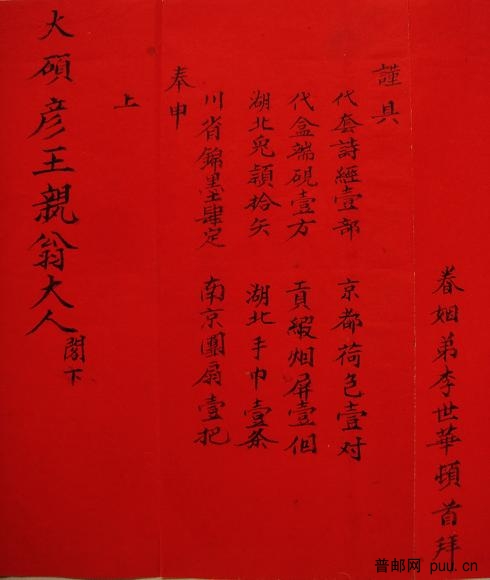 眷姻弟李世華頓首拜
謹具
代套詩經壹部 京都荷包壹对
代盒端硯壹方 貢緞烟屏壹個
湖北兎頴拾矢 湖北手巾壹条
川省錦墨肆定 南京團扇壹把
奉申
上
大碩彦王親翁大人閣下
普邮网 puu.cn